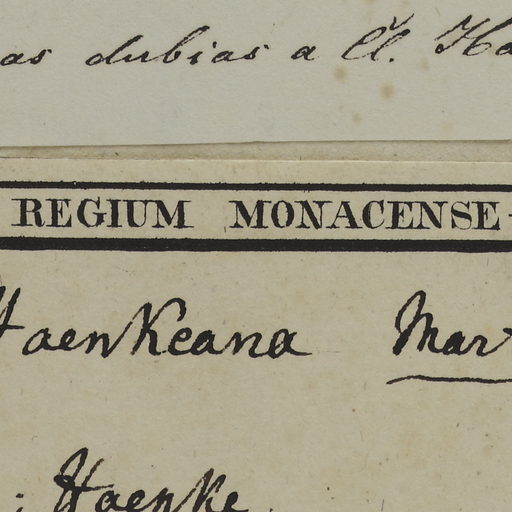 as dubias a Cl. Ha
REGIUM MONACENSE
Haenkeana Mart
: Haenke